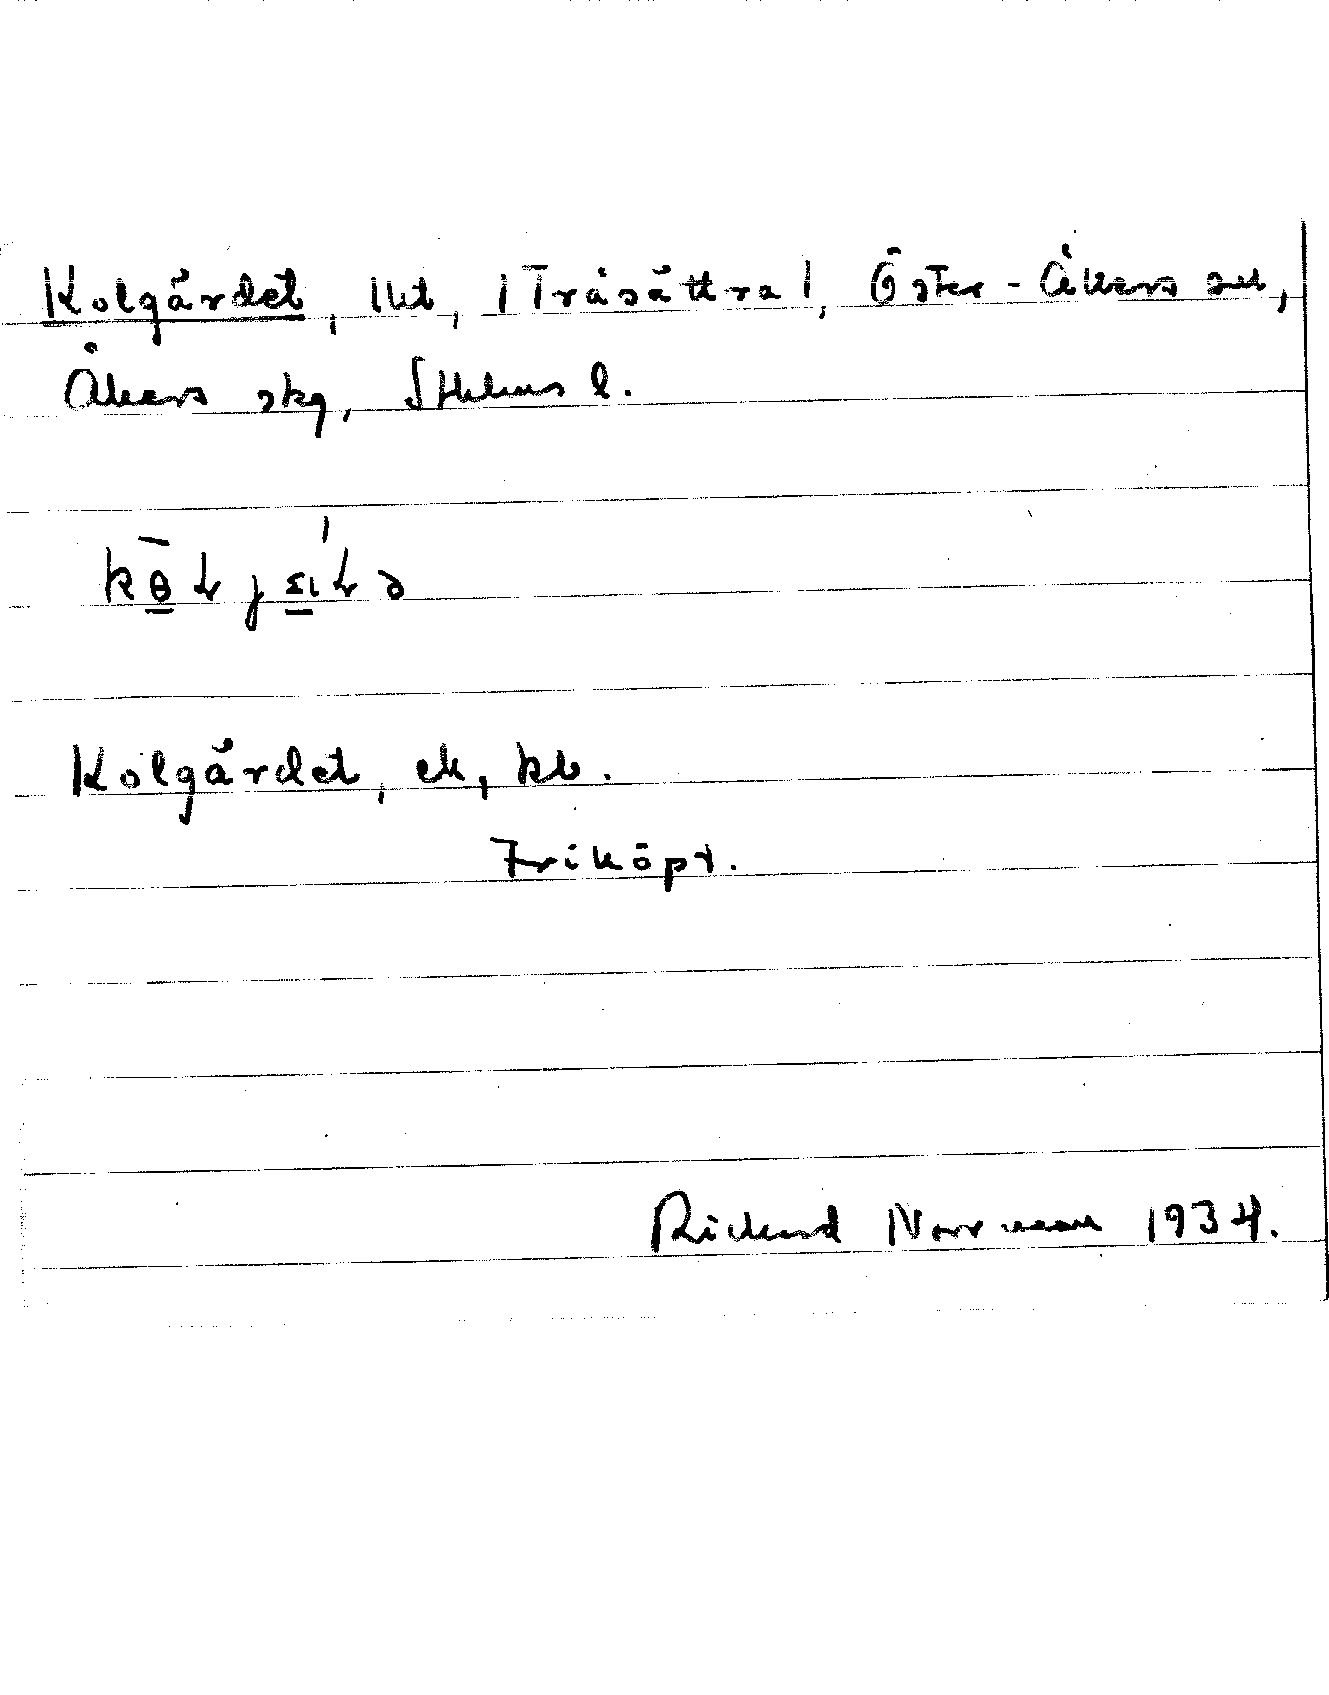 Kolgärdet, lht, /Träsättra/, Öster-Åkers sn,
Åkers skg, Sthlms l.
Kolgärdet, ek, kb.
Friköpt.
Rickard Norrman 1934.